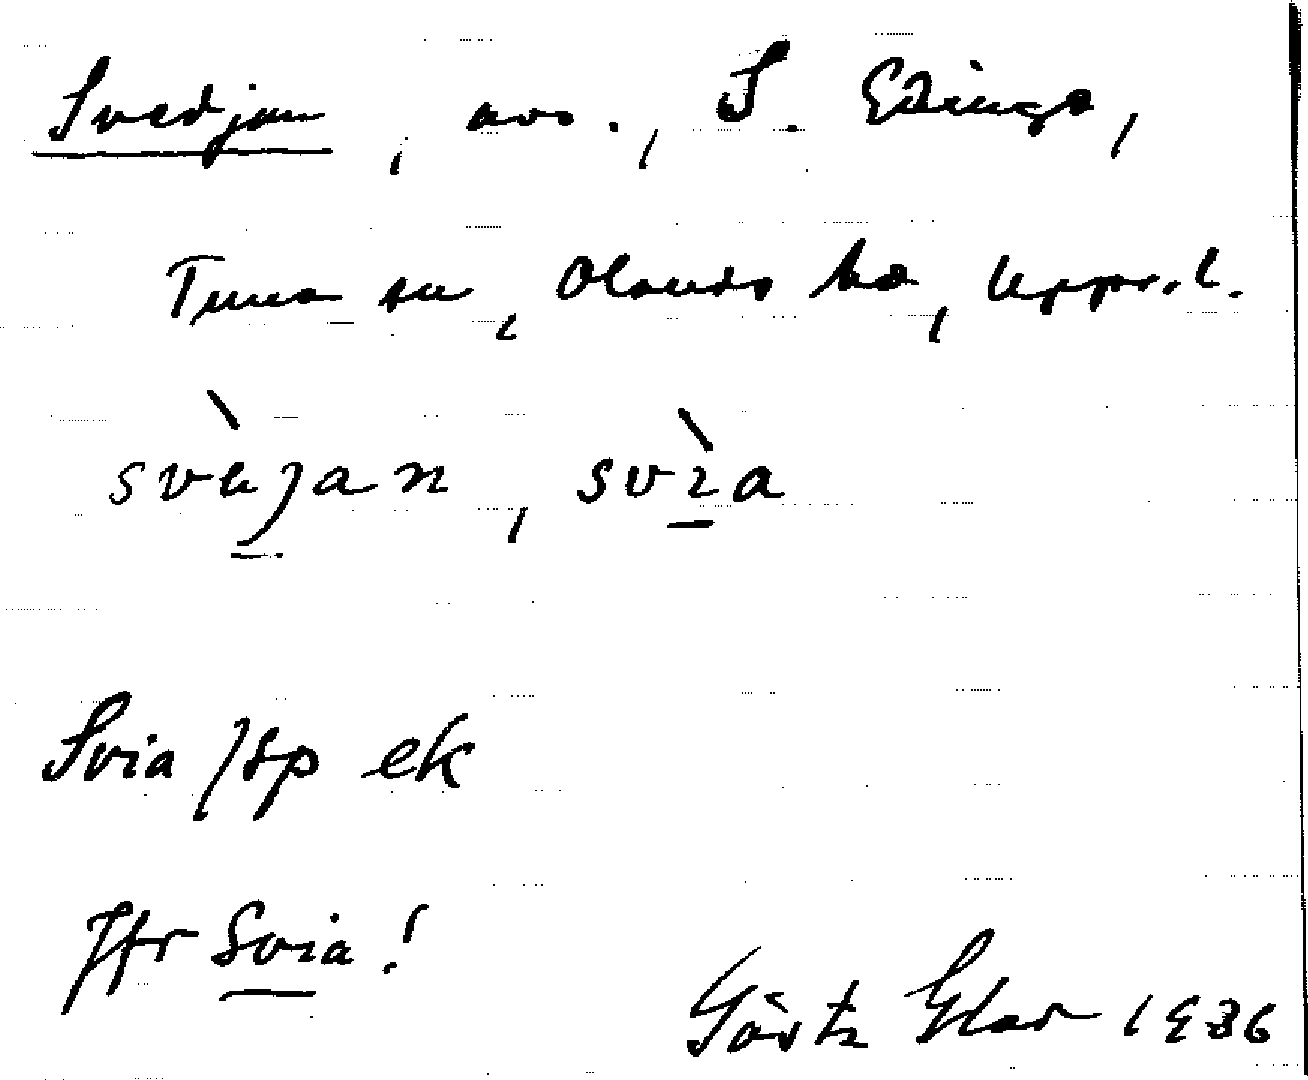 Svedjan, avs., S. Edinge,
Tuna sn, Olands hd, Upps. l.
svèjan, svìa
Svia /sp ek
Jfr Svia!
Göstz Elar 1936